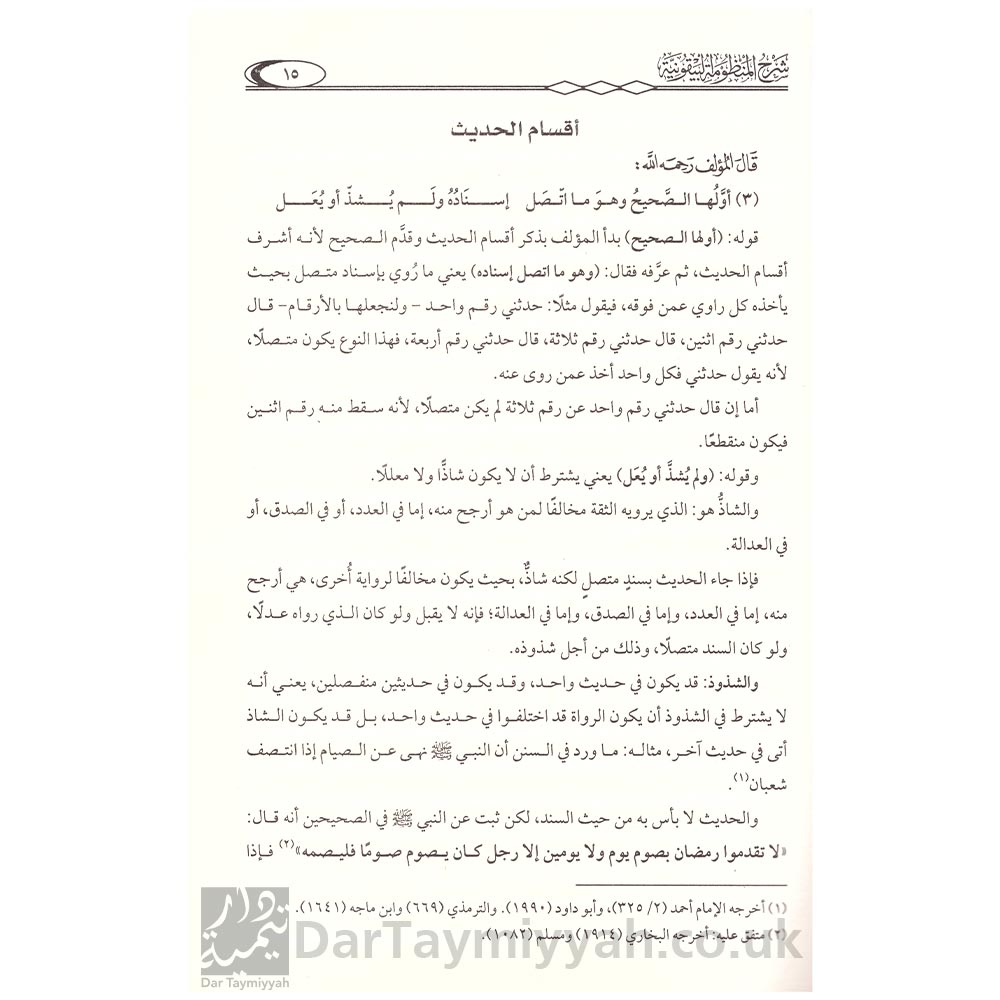 شرح المنظومة البيقونية
١٥
أقسام الحديث
قال المؤلف رحمه الله:
(٣) أوَّلُهـا الـصَّحيحُ وهـوَ مـا اتّـصَل إسـنَادُهُ ولَـم يُـشذّ أو يُعَـل
قوله: (أولها الـصحيح) بدأ المؤلف بذكر أقسام الحديث وقدَّم الـصحيح لأنـه أشـرف
أقسام الحديث، ثم عرَّفه فقال: (وهو ما اتصل إسناده) يعني ما رُوي بإسناد متـصل بحيـث
يأخذه كل راوي عمن فوقه، فيقول مثلًا: حدثني رقـم واحـد - ولنجعلهـا بالأرقـام- قـال
حدثني رقم اثنين، قال حدثني رقم ثلاثة، قال حدثني رقم أربعة، فهذا النوع يكون متـصلًا،
لأنه يقول حدثني فكل واحد أخذ عمن روى عنه.
أما إن قال حدثني رقم واحد عن رقم ثلاثة لم يكن متصلًا، لأنه سـقط منـه رقـم اثنـين
فيكون منقطعًا.
وقوله: (ولم يُشذَّ أو يُعَل) يعني يشترط أن لا يكون شاذًّا ولا معللًا.
والشاذُّ هو: الذي يرويه الثقة مخالفًا لمن هو أرجح منه، إما في العدد، أو في الصدق، أو
في العدالة.
فإذا جاء الحديث بسندٍ متصلٍ لكنه شاذٌّ، بحيث يكون مخالفًا لرواية أُخرى، هي أرجح
منه، إما في العدد، وإما في الصدق، وإما في العدالة؛ فإنه لا يقبل ولو كان الـذي رواه عـدلًا،
ولو كان السند متصلًا، وذلك من أجل شذوذه.
والشذوذ: قد يكون في حديث واحـد، وقـد يكـون في حـديثين منفـصلين، يعنـي أنـه
لا يشترط في الشذوذ أن يكون الرواة قد اختلفـوا في حـديث واحـد، بـل قـد يكـون الـشاذ
أتى في حديث آخـر، مثالـه: مـا ورد في الـسنن أن النبـي ﷺ نهـى عـن الـصيام إذا انتـصف
شعبان(١).
والحديث لا بأس به من حيث السند، لكن ثبت عن النبي ﷺ في الصحيحين أنه قـال:
«لا تقدموا رمضان بصوم يوم ولا يومين إلا رجل كـان يـصوم صـومًا فليـصمه»(٢) فـإذا
(١) أخرجه الإمام أحمد (٢/ ٣٢٥)، وأبو داود (١٩٩٠). والترمذي (٦٦٩) وابن ماجه (١٦٤١).
(٢) متفق عليه: أخرجه البخاري (١٩١٤) ومسلم (١٠٨٢).
دار تيمية
Dar Taymiyyah
DarTaymiyyah.co.uk